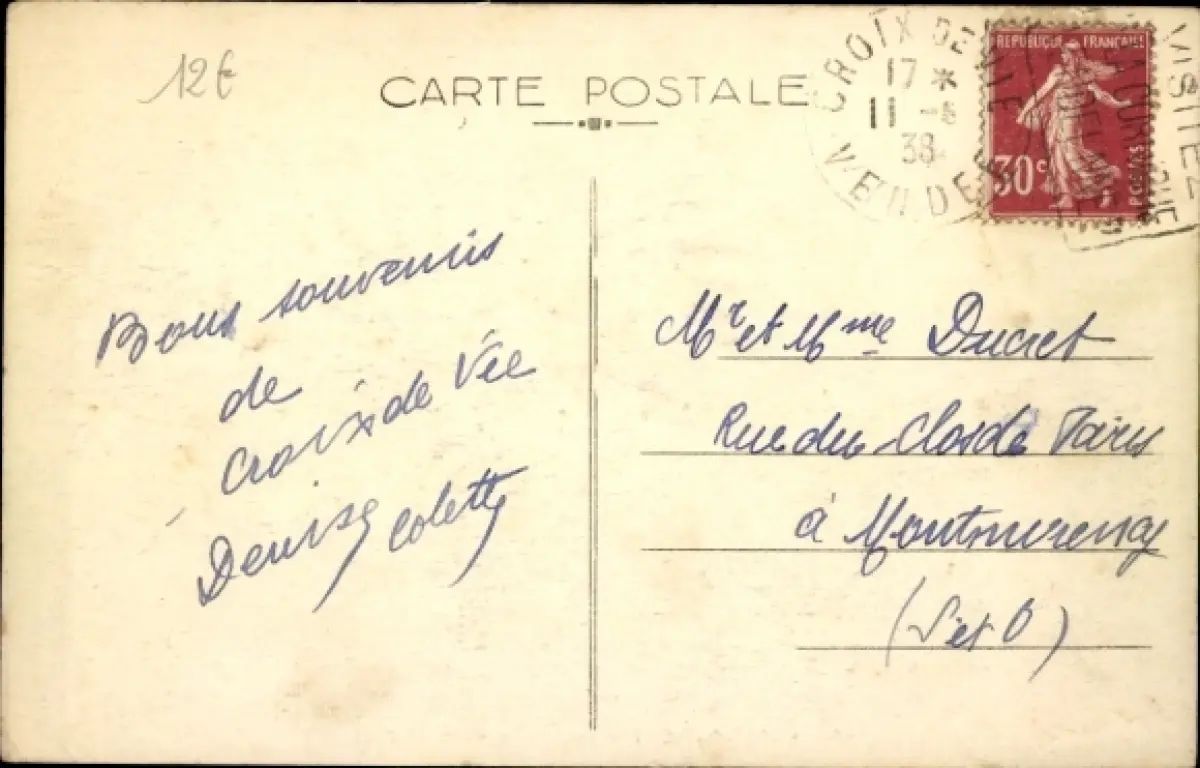 12€
CARTE POSTALE
CROIX DE VIE
17 *
11 -
38
VENDEE
REPUBLIQUE FRANÇAISE
30c
POSTES
VISITEZ
Bons souvenirs
de
Croix de Vie
Denise Colette
Mr et Mme Ducret
Rue du Clos de Paris
à Montmorency
(S et O)